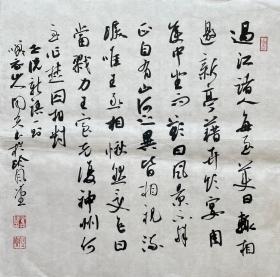 過江諸人每至美日輒相
邀新亭藉卉飲宴周
侯中坐而歎曰風景不殊
正自有山河之異皆相視流
淚唯王丞相愀然變色曰
當戮力王室克復神州何
至作楚囚相對
說新語